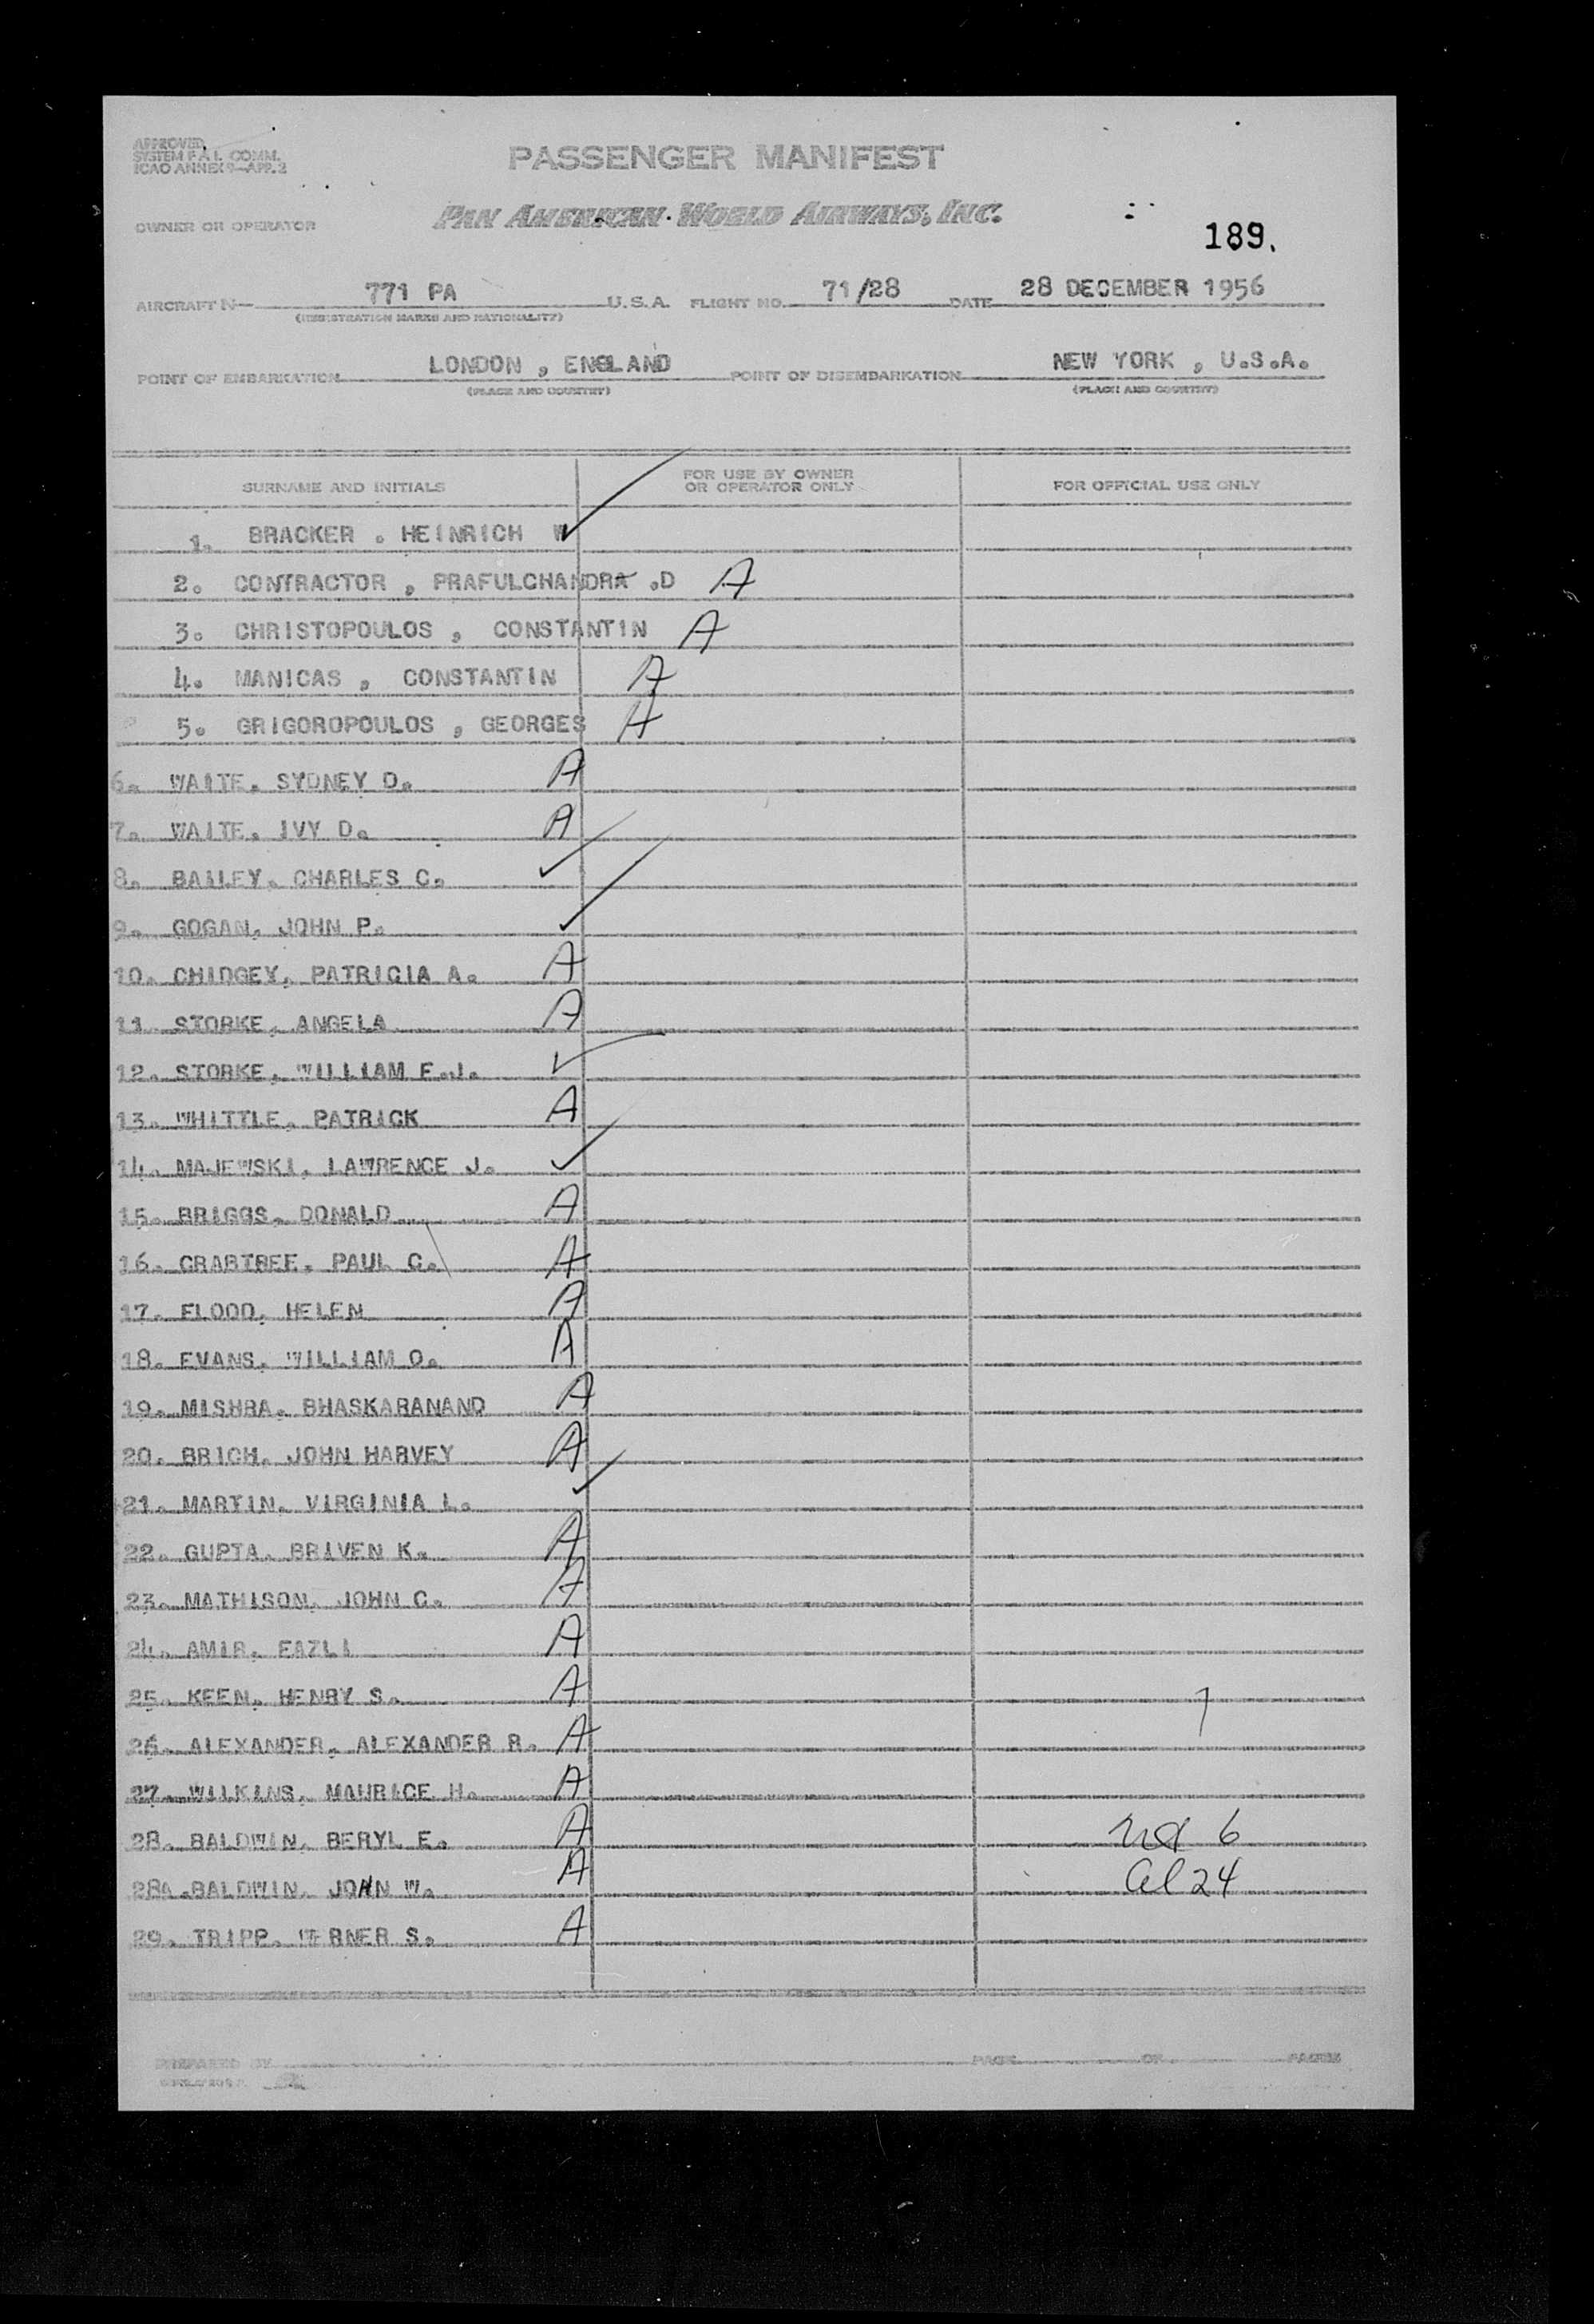 APPROVED
SYSTEM F.A.L. COMM.
ICAO ANNEX 9—APP. 2
PASSENGER MANIFEST
OWNER OR OPERATOR PAN AMERICAN WORLD AIRWAYS, INC.
189.
AIRCRAFT N 771 PA U.S.A. FLIGHT NO. 71/28 DATE 28 DECEMBER 1956
(REGISTRATION MARKS AND NATIONALITY)
POINT OF EMBARKATION LONDON , ENGLAND POINT OF DISEMBARKATION NEW YORK , U.S.A.
(PLACE AND COUNTRY) (PLACE AND COUNTRY)
SURNAME AND INITIALS FOR USE BY OWNER OR OPERATOR ONLY FOR OFFICIAL USE ONLY
1. BRACKER . HEINRICH W ✓
2. CONTRACTOR , PRAFULCHANDRA .D A
3. CHRISTOPOULOS , CONSTANTIN A
4. MANICAS , CONSTANTIN A
5. GRIGOROPOULOS , GEORGES A
6. WAITE. SYDNEY D. A
7. WAITE. IVY D. A
8. BAILEY. CHARLES C. ✓
9. GOGAN. JOHN P. ✓
10. CHIDGEY. PATRICIA A. A
11. STORKE. ANGELA A
12. STORKE. WILLIAM F.J. ✓
13. WHITTLE. PATRICK A
14. MAJEWSKI. LAWRENCE J. ✓
15. BRIGGS. DONALD A
16. CRABTREE. PAUL C. A
17. FLOOD. HELEN A
18. EVANS. WILLIAM O. A
19. MISHRA. BHASKARANAND A
20. BRICH. JOHN HARVEY A
21. MARTIN. VIRGINIA L. ✓
22. GUPTA. BRIVEN K. A
23. MATHISON. JOHN C. A
24. AMIR. FAZLI A
25. KEEN. HENRY S. A
26. ALEXANDER. ALEXANDER R. A
27. WILKINS. MAURICE H. A
28. BALDWIN. BERYL E. A 6
28A.BALDWIN. JOHN W. A al 24
29. TRIPP. WERNER S. A
PREPARED BY PAGE OF PAGES